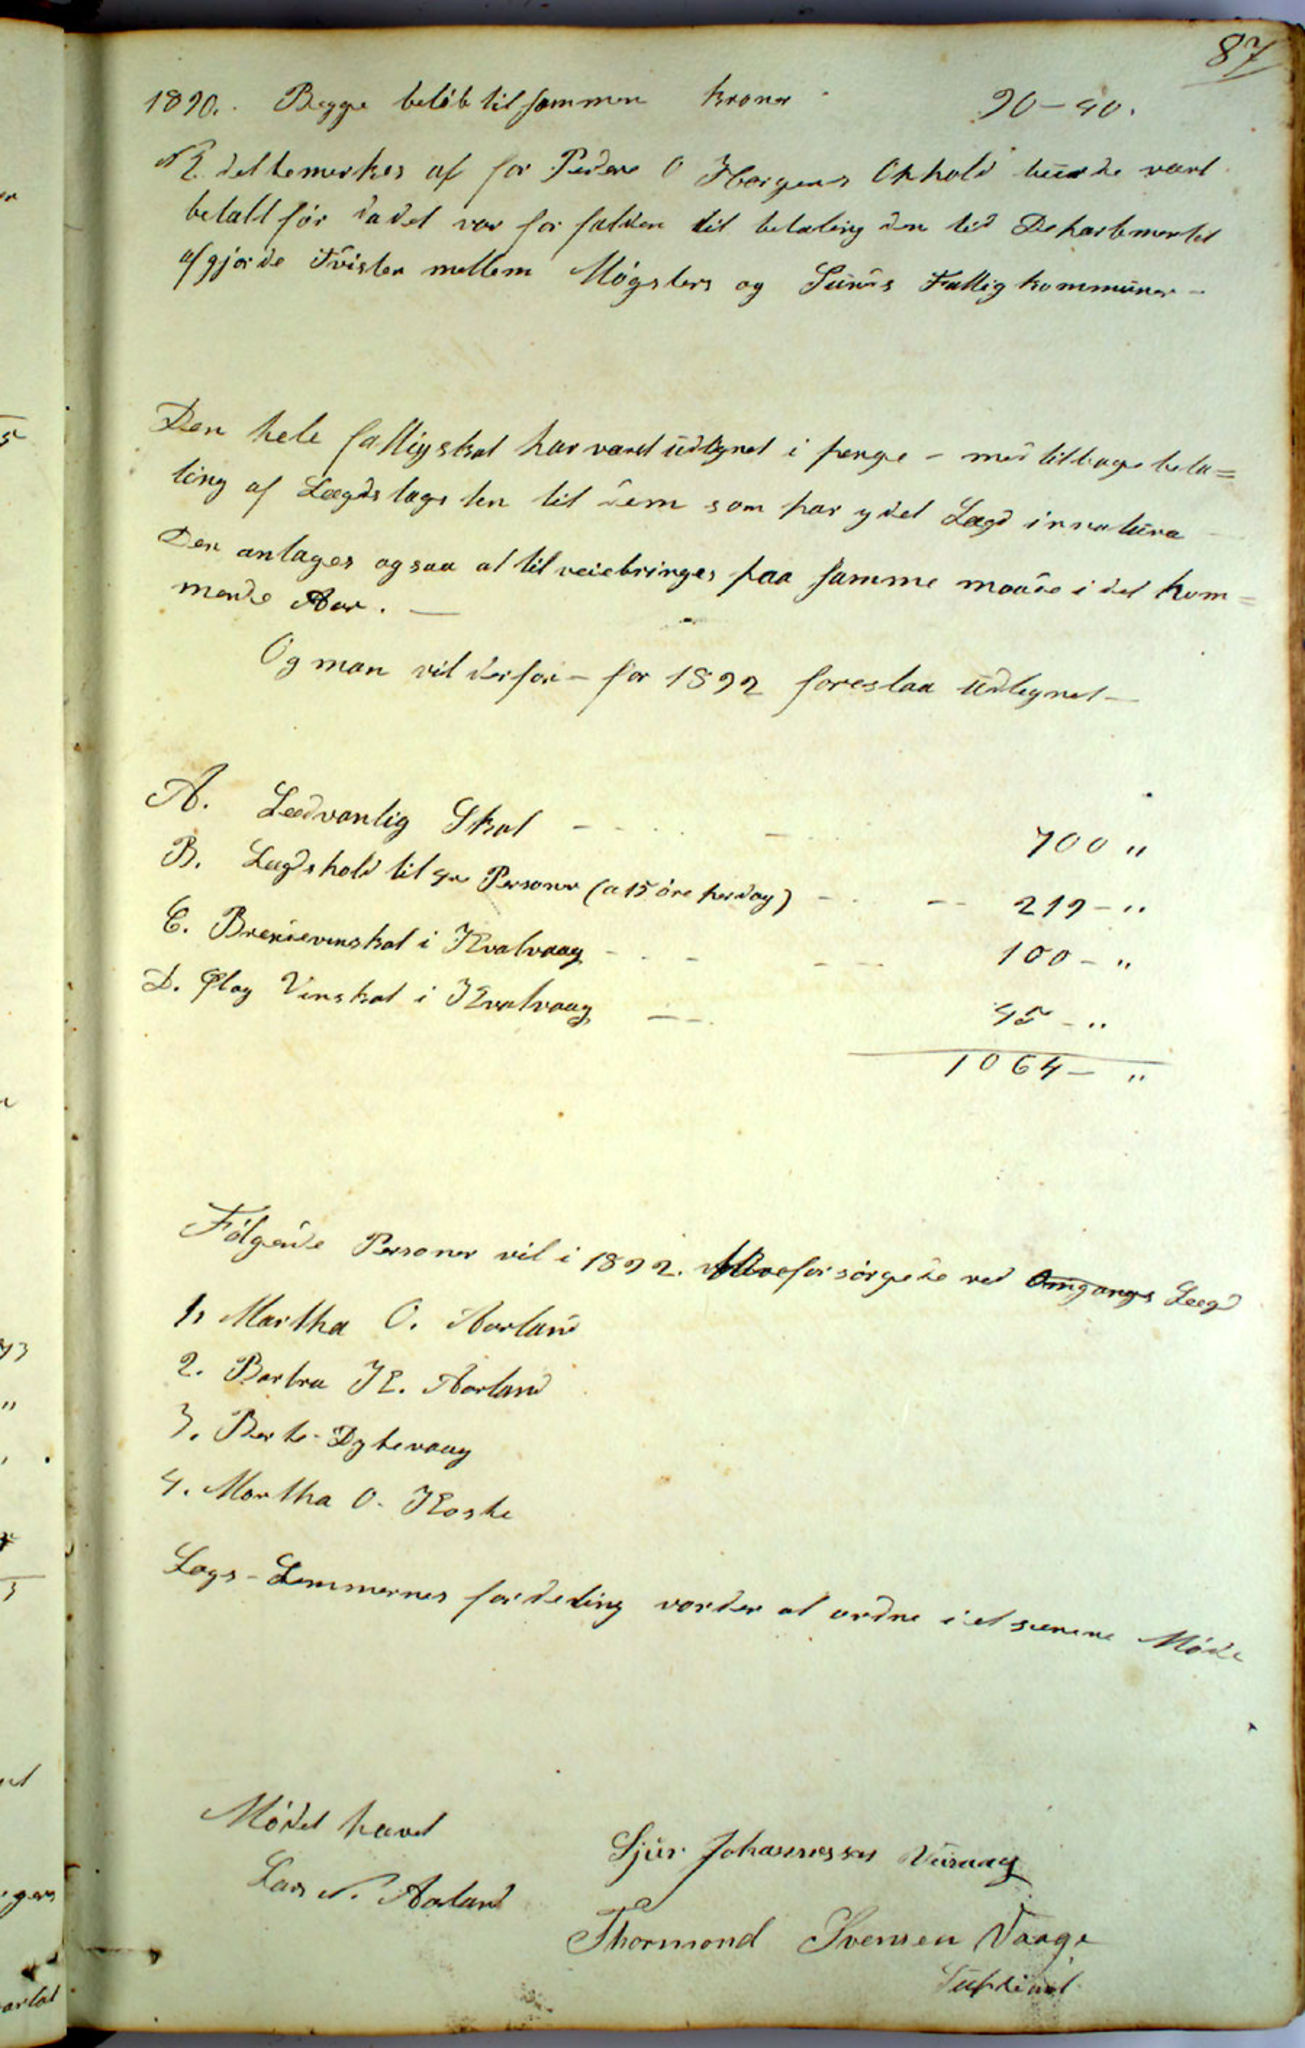 87
1890. Begge beløb tilsammen kroner 90-40.
NB. det bemerkes at for Peder O Ophold burde vært
betalt før da det var forfalden til betaling den tid Departementet
afgjorde Tvisten mellem Møgsters og Sunds Fattigkommuner -
Den hele fattigskat har været üdlignet i penge - med tilbagebeta=
ling af Lægdstagsten til dem som har ydet Lægd innatüra
Den antages ogsaa at tilveiebringes paa samme maade i det kom=
mende Aar. —
Og man vil derfor - for 1892 foreslaa üdlignet -
A. Sedvanlig Skat - - - - 700 "
B. Lægdshold til Personer (a 15 øre per dag) - - - 219 - "
C. Brendevinskat i Kvalvaag - - - - - 100 - "
D. Øl og Vinskat i Kvalvaag - - 45 - "
1064 - "
Følgende Personer vil i 1892. blive forsørgede ved Omgangs Lægd
1, Martha O. Aarland
2. Barbra K. Aarland
3. Berte Dykevaag
4. Martha O. Koske
Lægs-Lemmernes fordeling vorder at ordne i et senere Møde
Mødet hævet
Lars N. Aarland
Sjur Johannessen
Thormond Svensen Vaage